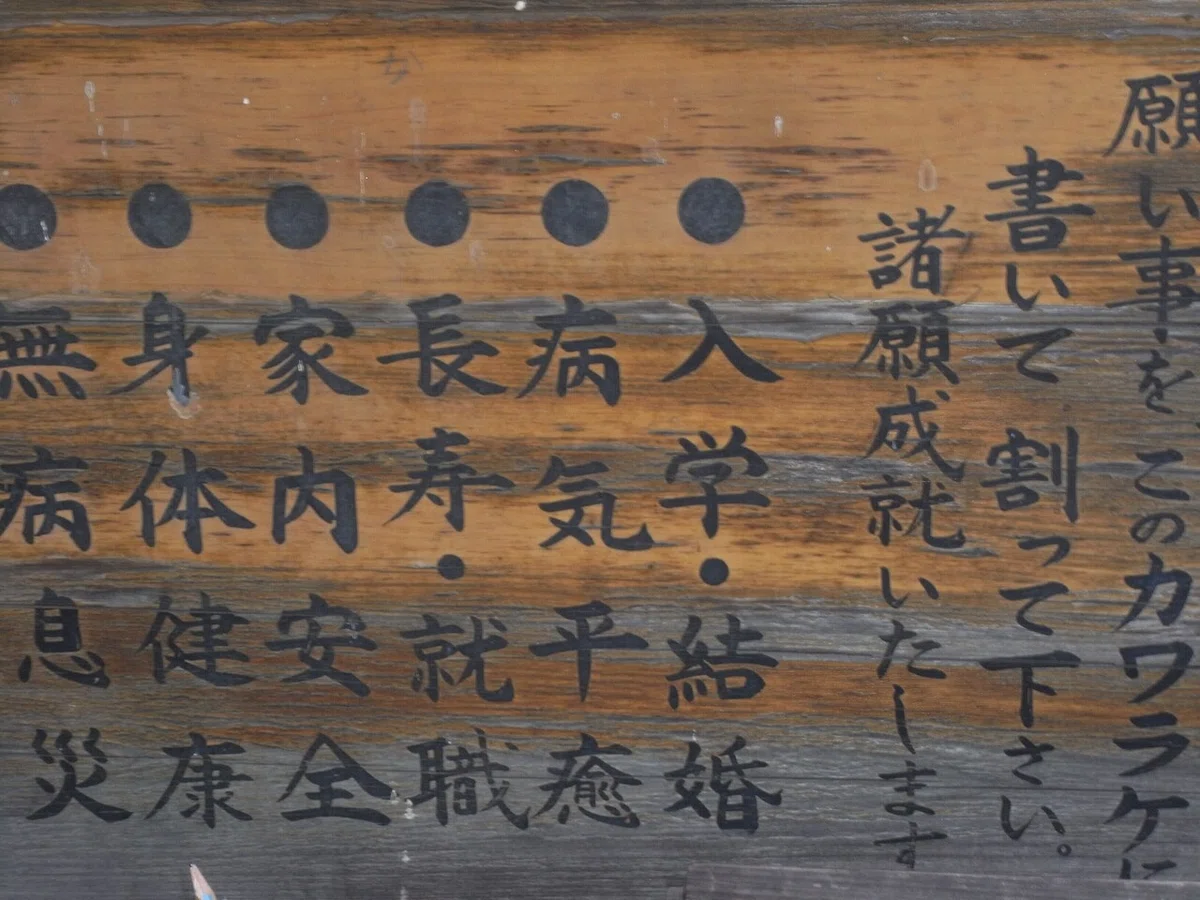 願い事を、このカワラケに
書いて割って下さい。
諸願成就いたします
●入学・結婚
●病気平癒
●長寿・就職
●家内安全
●身体健康
●無病息災